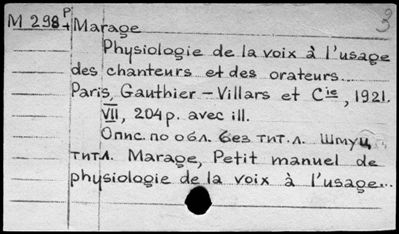 М 298 Р Marage
Physiologie de la voix à l'usage
des chanteurs et des orateurs...
Paris, Gauthier – Villars et Cie, 1921.
VII, 204 p. avec ill.
Опис. по обл. без тит. л. Шмуц.
титл. Marage, Petit manuel de
physiologie de la voix à l'usage...